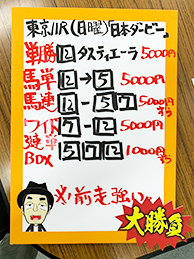 東京11R(日曜)日本ダービー
単勝 12 タスティエーラ 5000円
馬単 12→5 5000円
馬連 12-5 7 5000円ずつ
ワイド 7-12 5000円
3連単BOX 5 7 12 1000円ずつ
前走強い
大勝負